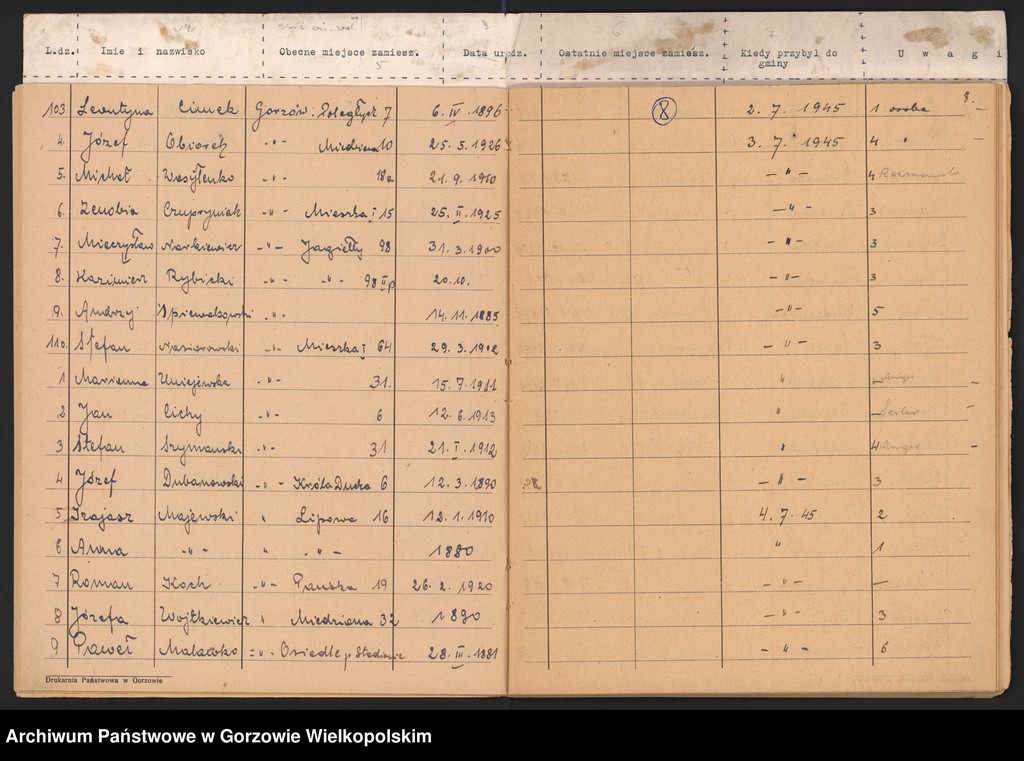 L.dz. Imie i nazwisko Obecne miejsce zamiesz. Data urodz. Ostatnie miejsce zamiesz. Kiedy przybył do gminy U w a g i
5
8.
103 Leontyna Cimek Gorzów: 7 6. IV. 1896 8 2. 7. 1945 1 osoba —
4. Józef Obiorek -"- Miedziana 10 25. 5. 1926 3. 7. 1945 4 " —
5. Michał Wasylenko -"- 18a 21. 9. 1910 — " — 4
6. Zenobia Czupryniak -"- Mieszka I 15 25. II. 1925 — " — 3
7. Mieczysław Narkiewicz -"- Jagiełły 98 31. 3. 1900 — " — 3
8. Kazimierz Rybicki -"- -"- 98 II p 20. 10. — " — 3
9. Andrzej Śpiewakowski -"- 14. 11. 1885 — " — 5
110. Stefan Nasiorowski -"- Mieszka I 64 29. 3. 1902 — " — 3
1 Marianna Uniejewska -"- 31. 15. 7. 1911 " —
2 Jan Cichy -"- 6 12. 6. 1913 " Seiler —
3 Stefan Szymanski -"- 31 21. I. 1912 " 4 —
4 Józef Dubanowski -"- Króla Ducha 6 12. 3. 1890 — " — 3
5 Izajasz Majewski " Lipowa 16 12. 1. 1910 4. 7. 45 2
6 Anna -"- " -"- 1880 " 1
7 Roman Koch -"- Pauska 19 26. 2. 1920 — " — —
8 Józefa Wojtkiewicz " Miedziana 32 1890 — " — 3
9 Paweł Malawko -"- Osiedle p. Stadionie 28. III. 1881 — " — 6
Drukarnia Państwowa w Gorzowie
Archiwum Państwowe w Gorzowie Wielkopolskim